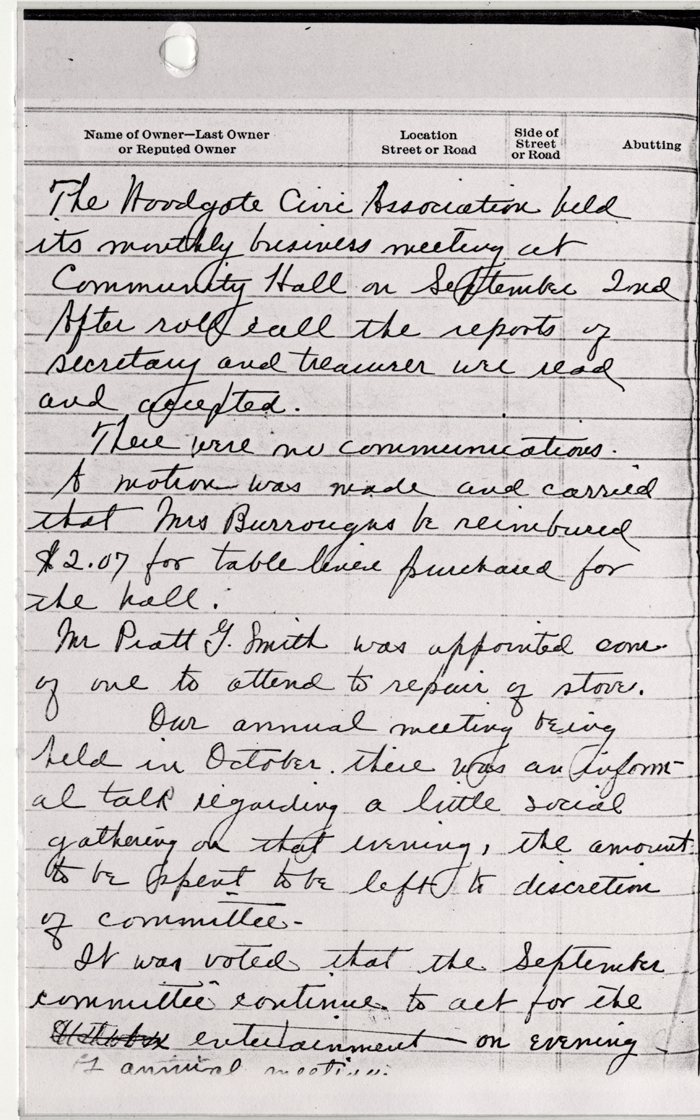 Name of Owner—Last Owner
or Reputed Owner
Location
Street or Road
Side of
Street
or Road
Abutting
The Woodgate Civic Association held
its monthly business meeting at
Community Hall on September 2nd
After roll call the reports of
secretary and treasurer were read
and accepted.
There were no communications.
A motion was made and carried
that Mrs Burroughs be reimbured
$2.07 for table linen purchased for
the hall.
Mr Pratt G. Smith was appointed com.
of one to attend to repair of stove.
Our annual meeting being
held in October. there was an inform-
al talk regarding a little social
gathering on that evening, the amount
to be spent to be left to discretion
of committee-
It was voted that the September
committee continue to act for the
entertainment on evening
of annual meeting.